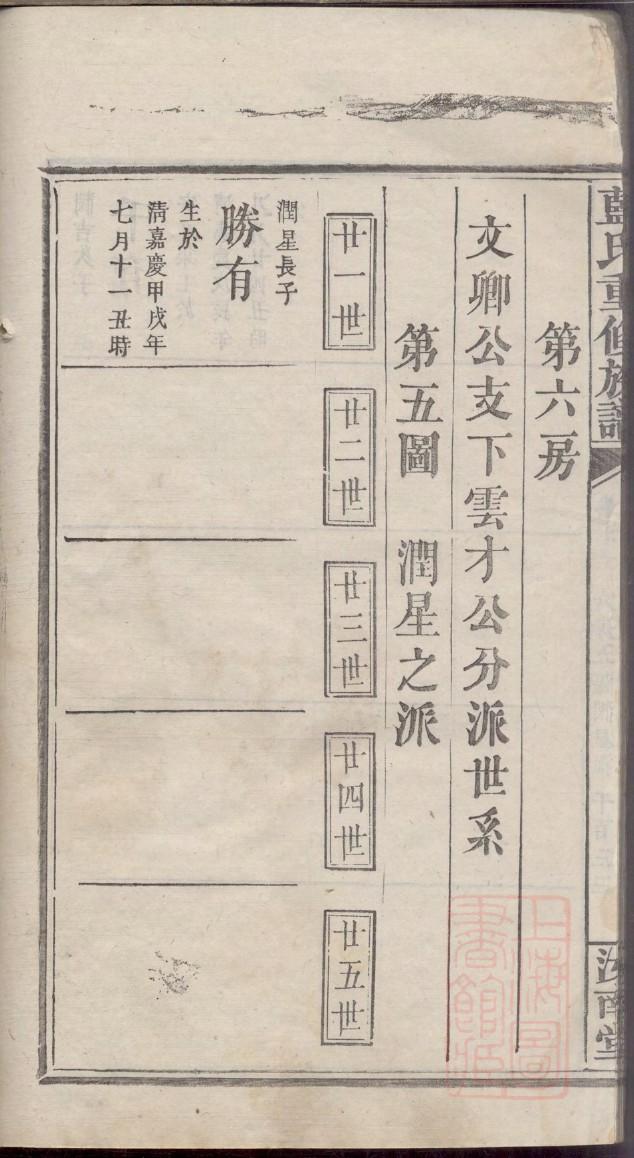 藍氏重修族譜
汝南堂
第六房
文卿公支下雲才公分派世系
第五圖 潤星之派
廿一世
廿二世
廿三世
廿四世
廿五世
潤星長子
勝有
生於
清嘉慶甲戌年
七月十一丑時
上海圖
書館藏